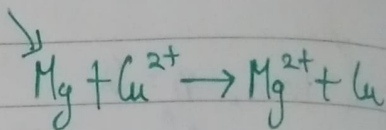 Mg + Cu²⁺ → Mg²⁺ + Cu